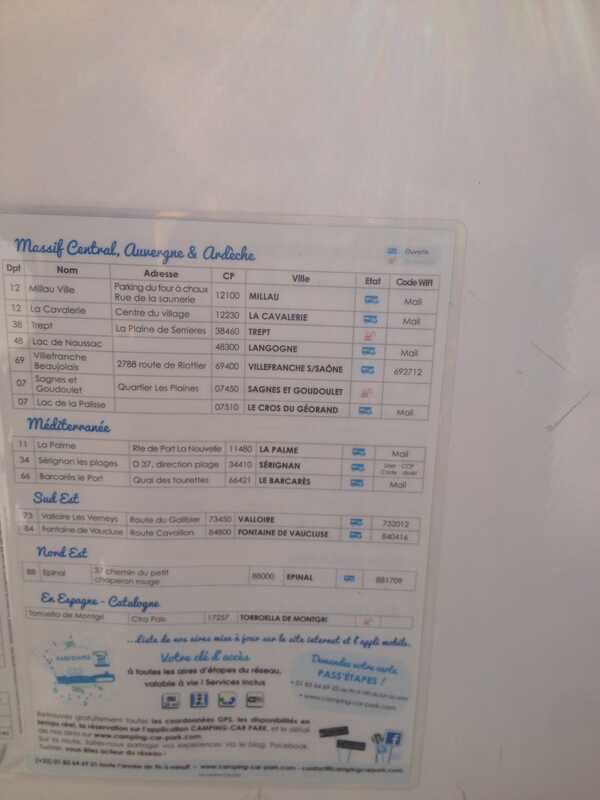 Massif Central, Auvergne & Ardèche
Ouverts
Dpt Nom Adresse CP Ville Etat Code WIFI
12 Millau Ville Parking du four à chaux Rue de la saunerie 12100 MILLAU Mail
12 La Cavalerie Centre du village 12230 LA CAVALERIE Mail
38 Trept La Plaine de Serrieres 38460 TREPT
48 Lac de Naussac 48300 LANGOGNE Mail
69 Villefranche Beaujolais 2788 route de Riottier 69400 VILLEFRANCHE S/SAÔNE 692712
07 Sagnes et Goudoulet Quartier Les Plaines 07450 SAGNES ET GOUDOULET
07 Lac de la Palisse 07510 LE CROS DU GÉORAND Mail
Méditerranée
11 La Palme Rte de Port La Nouvelle 11480 LA PALME Mail
34 Sérignan les plages D 37, direction plage 34410 SÉRIGNAN User : CCP Code :
66 Barcarès le Port Quai des tourettes 66421 LE BARCARÈS Mail
Sud Est
73 Valloire Les Verneys Route du Galibier 73450 VALLOIRE 732012
84 Fontaine de Vaucluse Route Cavaillon 84800 FONTAINE DE VAUCLUSE 840416
Nord Est
88 Epinal 37 chemin du petit chaperon rouge 88000 EPINAL 881709
En Espagne - Catalogne
Torroella de Montgri Ctra Pals 17257 TORROELLA DE MONTGRI
...Liste de nos aires mise à jour sur le site internet et l'appli mobile.
PASS'ÉTAPES
Votre clé d'accès
à toutes les aires d'étapes du réseau,
valable à vie ! Services inclus
Demandez votre carte
PASS'ÉTAPES !
• 01 83 64 69 21
• www.camping-car-park.com
Retrouvez gratuitement toutes les coordonnées GPS, les disponibilités en
temps réel, la réservation sur l'application CAMPING-CAR PARK, et le détail
de nos aires sur www.camping-car-park.com
Sur la route, faites-nous partager vos expériences via le blog, Facebook,
Twitter, vous êtes acteur du réseau !
(+33) 01 83 64 69 21 toute l'année de 9h à - www.camping-car-park.com - contact@campingcarpark.com